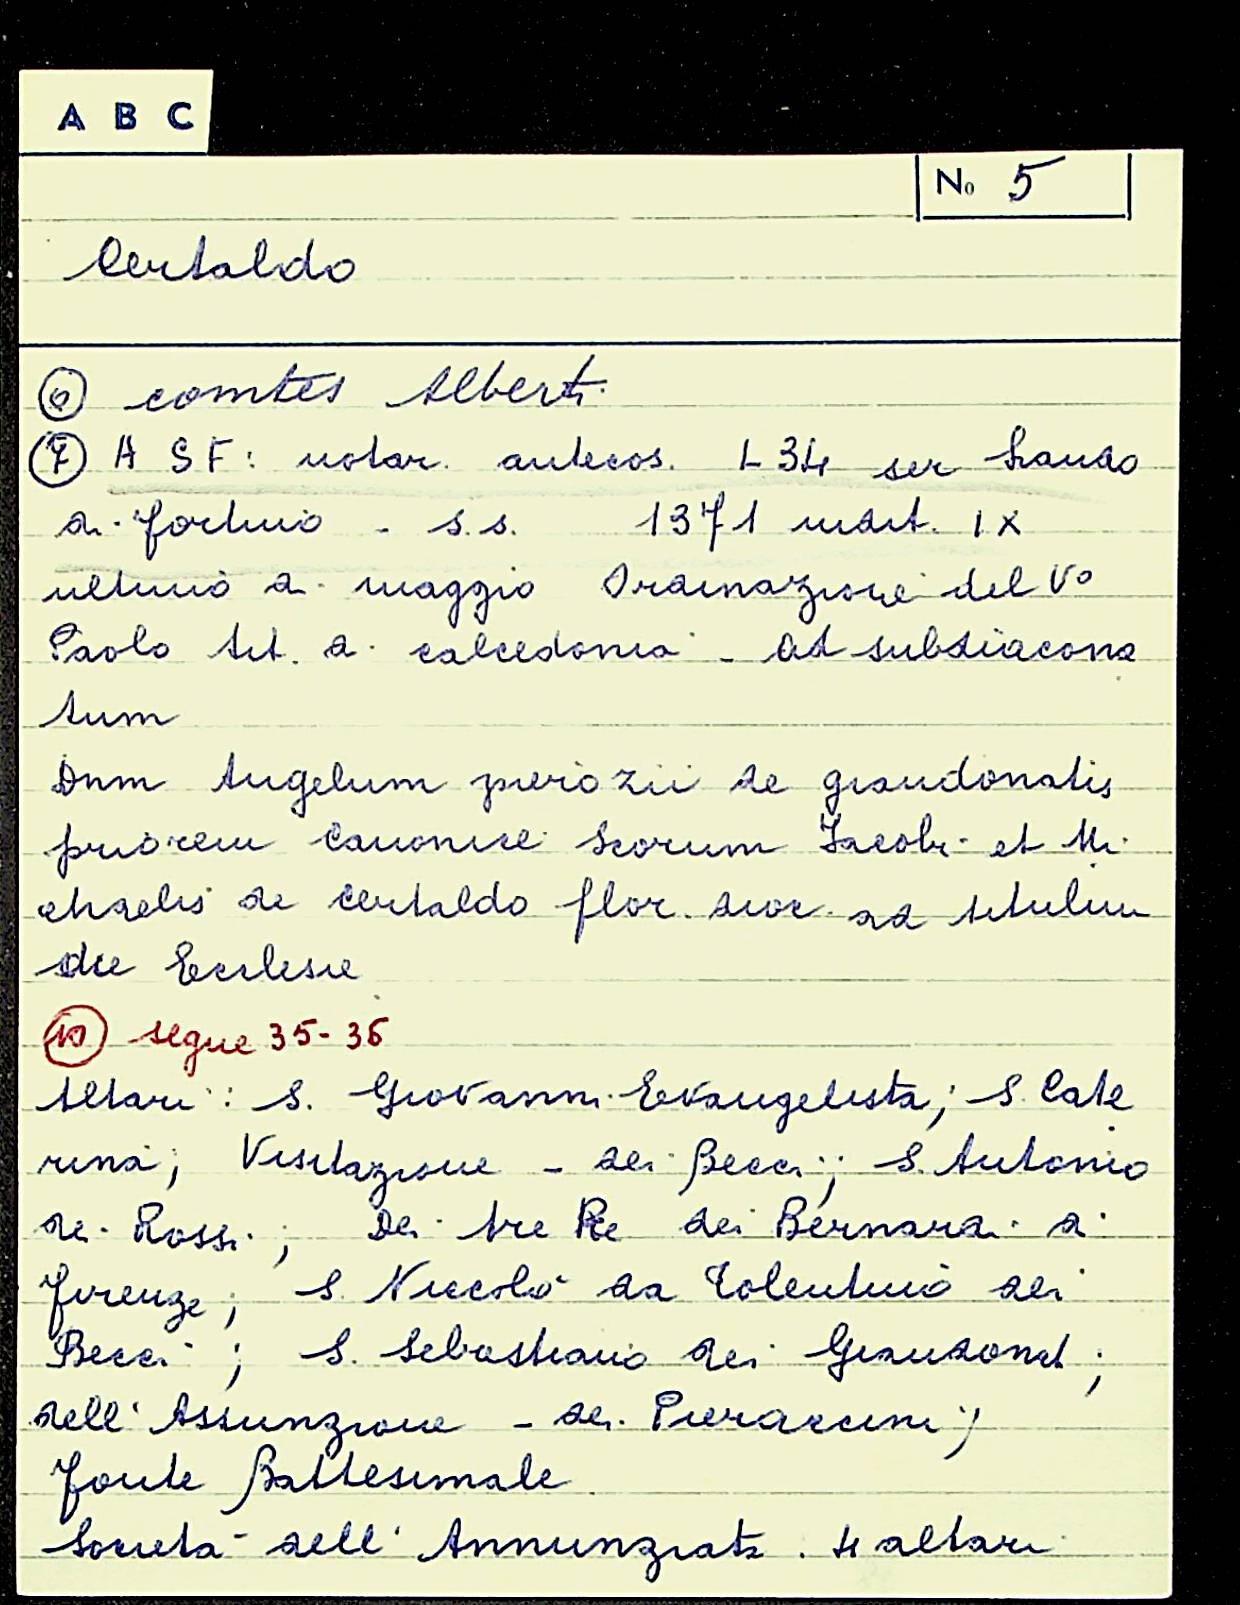 A B C
No 5
Certaldo
comtes Alberti
7 A S F: notar. antecos. L 34 ser
di Fortino - s.s. 1371 indit. IX
ultimo di maggio Ordinazione del Vo
Paolo tit. di calcedonia - ad subdiacona
tum
Dnm Angelum pierozii de giandonatis
priorem Canonice Scorum Jacobi et Mi
chaelis de Certaldo flor. dioc. ad titulum
dce Ecclesie
10 segue 35-36
Altari: S. Giovanni Evangelista; S. Cate
rina; Visitazione - dei Becci; S. Antonio
dei Rossi; Dei tre Re dei Bernardi di
Firenze; S. Niccolò da Tolentino dei
Becci; S. Sebastiano dei Giandonati;
dell'Assunzione - dei Pieraccini;
Fonte Battesimale
Società dell'Annunziata. 4 altari